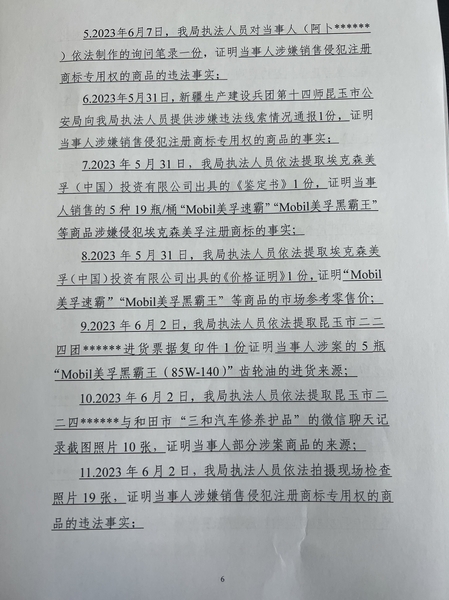 5.2023年6月7日，我局执法人员对当事人（阿卜******
）依法制作的询问笔录一份，证明当事人涉嫌销售侵犯注册
商标专用权的商品的违法事实；
6.2023年5月31日，新疆生产建设兵团第十四师昆玉市公
安局向我局执法人员提供涉嫌违法线索情况通报1份，证明
当事人涉嫌销售侵犯注册商标专用权的商品的事实；
7.2023年5月31日，我局执法人员依法提取埃克森美
孚（中国）投资有限公司出具的《鉴定书》1份，证明当事
人销售的5种19瓶/桶“Mobil美孚速霸”“Mobil美孚黑霸王”
等商品涉嫌侵犯埃克森美孚注册商标的事实；
8.2023年5月31日，我局执法人员依法提取埃克森美
孚（中国）投资有限公司出具的《价格证明》1份，证明“Mobil
美孚速霸”“Mobil美孚黑霸王”等商品的市场参考零售价；
9.2023年6月2日，我局执法人员依法提取昆玉市二二
四团******进货票据复印件1份证明当事人涉案的5瓶
“Mobil美孚黑霸王（85W-140）”齿轮油的进货来源；
10.2023年6月2日，我局执法人员依法提取昆玉市二
二四******与和田市“三和汽车修养护品”的微信聊天记
录截图照片10张，证明当事人部分涉案商品的来源；
11.2023年6月2日，我局执法人员依法拍摄现场检查
照片19张，证明当事人涉嫌销售侵犯注册商标专用权的商
品的违法事实；
6